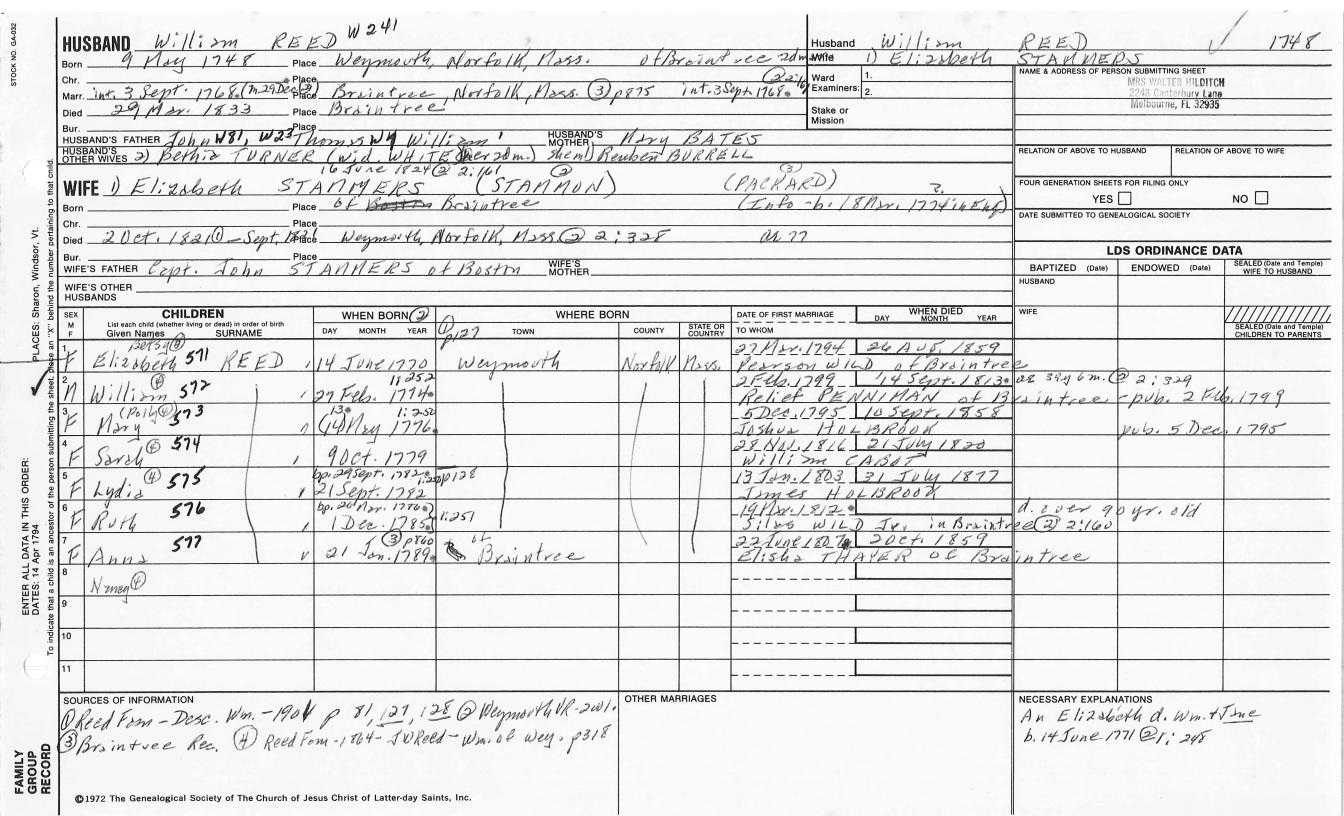 STOCK NO. GA-032
HUSBAND William REED W 241
Born 9 May 1748 Place Weymouth, Norfolk, Mass. of Braintree 2dm
Chr. Place
Marr. int. 3 Sept. 1768 (m 29 Dec ③) Place Braintree, Norfolk, Mass. ③ p875 int. 3 Sept. 1768. ② 2:161
Died 29 Mar. 1833 Place Braintree
Bur. Place
HUSBAND'S FATHER John W81, W23 Thomas W4 William' HUSBAND'S MOTHER Mary BATES
HUSBAND'S OTHER WIVES 2) Bethia TURNER (wid. WHITE (her 2dm.) she m) Reuben BURRELL
16 June 1824 ② 2:161
WIFE 1) Elizabeth STAMMERS (STAMMON) ② (PACKARD) (3)
Born Place of Boston Braintree (Info - b. 18 Mar. 1774 in Eng)
Chr. Place
Died 2 Oct. 1821① - Sept. 1821 Place Weymouth, Norfolk, Mass ② 2:328 ae 77
Bur. Place
WIFE'S FATHER Capt. John STAMMERS of Boston WIFE'S MOTHER
WIFE'S OTHER HUSBANDS
Husband William REED 1748
Wife 1) Elizabeth STAMMERS
Ward Examiners: 1.
2.
Stake or Mission
NAME & ADDRESS OF PERSON SUBMITTING SHEET
MRS WALTER HILDITCH
2248 Canterbury Lane
Melbourne, FL 32935
RELATION OF ABOVE TO HUSBAND RELATION OF ABOVE TO WIFE
FOUR GENERATION SHEETS FOR FILING ONLY
YES NO
DATE SUBMITTED TO GENEALOGICAL SOCIETY
LDS ORDINANCE DATA
BAPTIZED (Date) ENDOWED (Date) SEALED (Date and Temple) WIFE TO HUSBAND
HUSBAND
WIFE
SEALED (Date and Temple) CHILDREN TO PARENTS
SEX M F CHILDREN WHEN BORN ② WHERE BORN DATE OF FIRST MARRIAGE WHEN DIED
List each child (whether living or dead) in order of birth
Given Names SURNAME DAY MONTH YEAR ① p127 TOWN COUNTY STATE OR COUNTRY TO WHOM DAY MONTH YEAR
Betsy ④ 27 Mar. 1794 26 Aug. 1859
1 F Elizabeth 571 REED 14 June 1770 Weymouth Norfolk Mass. Pearson WILD of Braintree
2 M William ④ 572 27 Feb. 1774 1:252 2 Feb. 1799 14 Sept. 1813 ae 39y 6m. ② 2:329
Relief PENNIMAN of Braintree - pub. 2 Feb. 1799
3 F Mary (Polly ④) 573 13 14 May 1776 1:250 5 Dec. 1795 10 Sept. 1858
Joshua HOLBROOK pub. 5 Dec. 1795
4 F Sarah ④ 574 9 Oct. 1779 28 Nov. 1816 21 July 1820
William CABOT
5 F Lydia ④ 575 bp. 29 Sept. 1782 1:250 p128 21 Sept. 1782 13 Jan. 1803 31 July 1877
James HOLBROOK
6 F Ruth 576 bp. 26 Mar. 1786 1 Dec. 1785 1:251 19 Mar. 1812 d. over 90 yr. old
Silas WILD Jr. in Braintree ② 2:160
7 F Anna 577 21 Jan. 1789 ③ p860 of Braintree 22 June 1807 2 Oct. 1859
Elisha THAYER of Braintree
8 Nancy ④
9
10
11
SOURCES OF INFORMATION
① Reed Fam - Desc. Wm. - 1901 p 81, 127, 128 ② Weymouth VR - 2 vol.
③ Braintree Rec. ④ Reed Fam - 1864 - JW Reed - Wm. of Wey. p318
OTHER MARRIAGES
NECESSARY EXPLANATIONS
An Elizabeth d. Wm. + Jane
b. 14 June 1771 ② 1:248
©1972 The Genealogical Society of The Church of Jesus Christ of Latter-day Saints, Inc.
ENTER ALL DATA IN THIS ORDER:
DATES: 14 Apr 1794 PLACES: Sharon, Windsor, Vt.
To indicate that a child is an ancestor of the person submitting the sheet, place an "X" behind the number pertaining to that child.
FAMILY GROUP RECORD